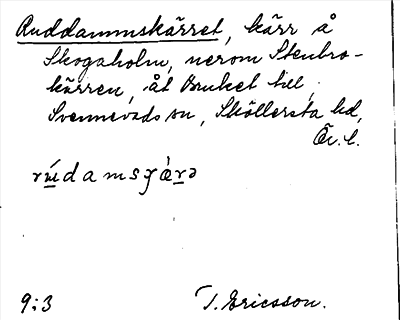 Ruddammskärret, kärr å
Skogaholm, nerom Stubro-
kärren, åt Bruket till,
Svennevads sn, Sköllersta hd,
Ör. l.
9:3 T. Ericsson.